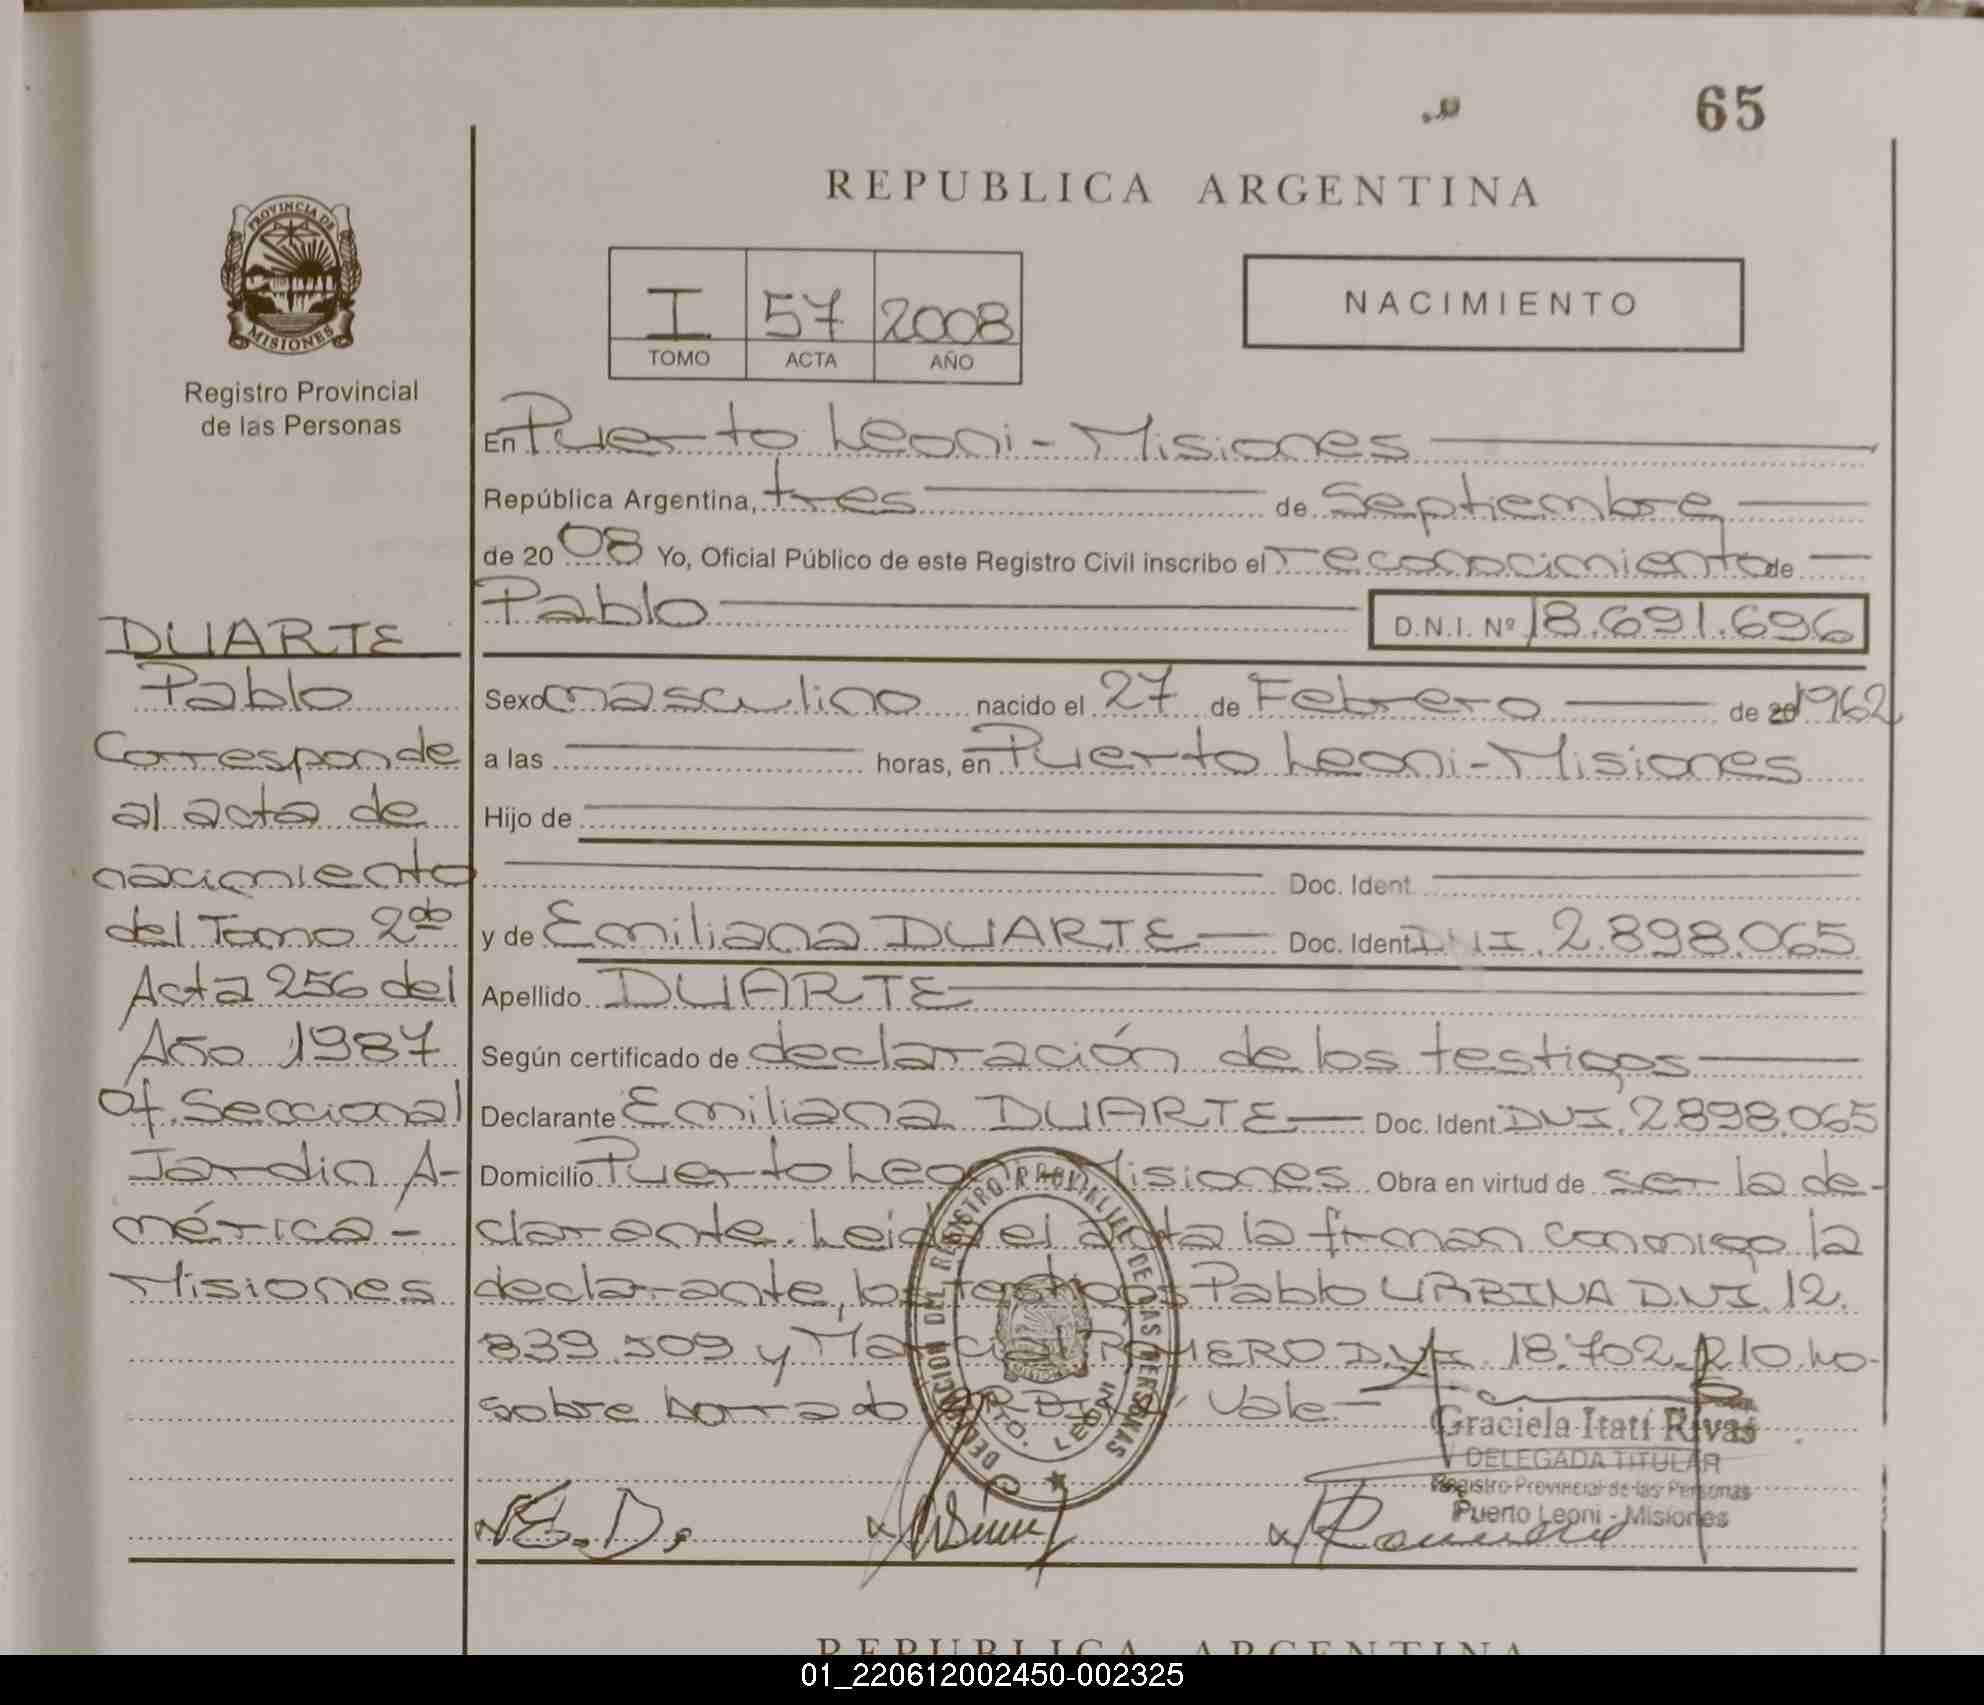 65
REPUBLICA ARGENTINA
PROVINCIA DE
MISIONES
Registro Provincial
de las Personas
I 57 2008
TOMO ACTA AÑO
NACIMIENTO
En Puerto Leoni - Misiones
República Argentina, tres de Septiembre
de 20 08 Yo, Oficial Público de este Registro Civil inscribo el reconocimiento de
Pablo D.N.I. Nº 18.691.696
Sexo masculino nacido el 27 de Febrero de 20 1962
a las horas, en Puerto Leoni - Misiones
Hijo de
Doc. Ident.
y de Emiliana DUARTE Doc. Ident. DNI. 2.898.065
Apellido DUARTE
Según certificado de declaración de los testigos
Declarante Emiliana DUARTE Doc. Ident DNI. 2898.065
Domicilio Puerto Leoni Misiones Obra en virtud de ser la de-
clarante. Leida el acta la firman conmigo la
declarante, los testigos Pablo URBINA D.N.I. 12.
839.509 y ROMERO DNI. 18.702.210. Lo
sobre borrado Vale-
DUARTE
Pablo
Corresponde
al acta de
nacimiento
del Tomo 2do
Acta 256 del
Año 1987
Of. Seccional
Jardin A-
mérica -
Misiones
DIRECCION DEL REGISTRO PROVINCIAL DE LAS PERSONAS
PTO. LEONI
Graciela Itatí Rivas
DELEGADA TITULAR
Registro Provincial de las Personas
Puerto Leoni - Misiones
E. D.
Romero
REPUBLICA ARGENTINA
01_220612002450-002325